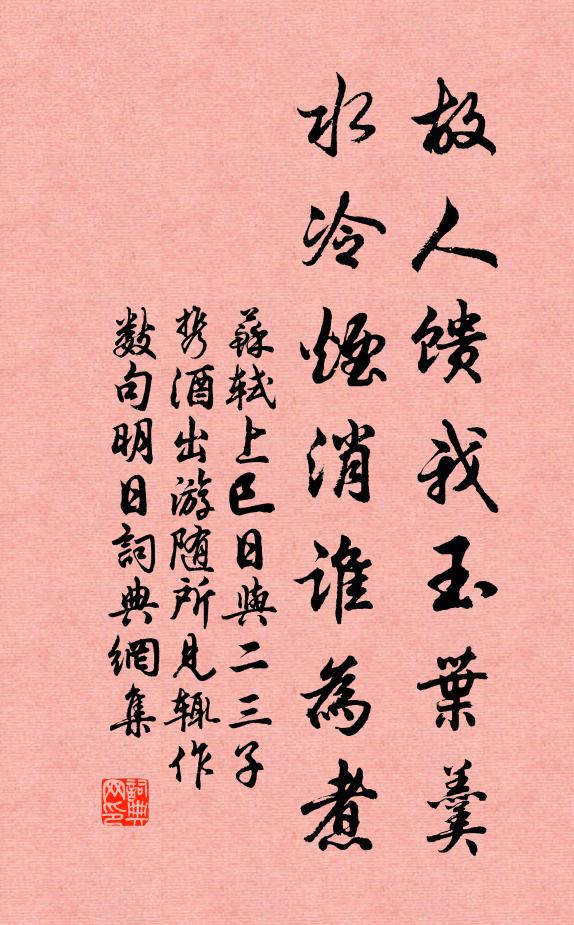 故人馈我玉葉羹
水冷煙消誰為煮
蘇軾上巳日與二三子
携酒出游随所見輒作
數句明日詞典網集
詞典网印